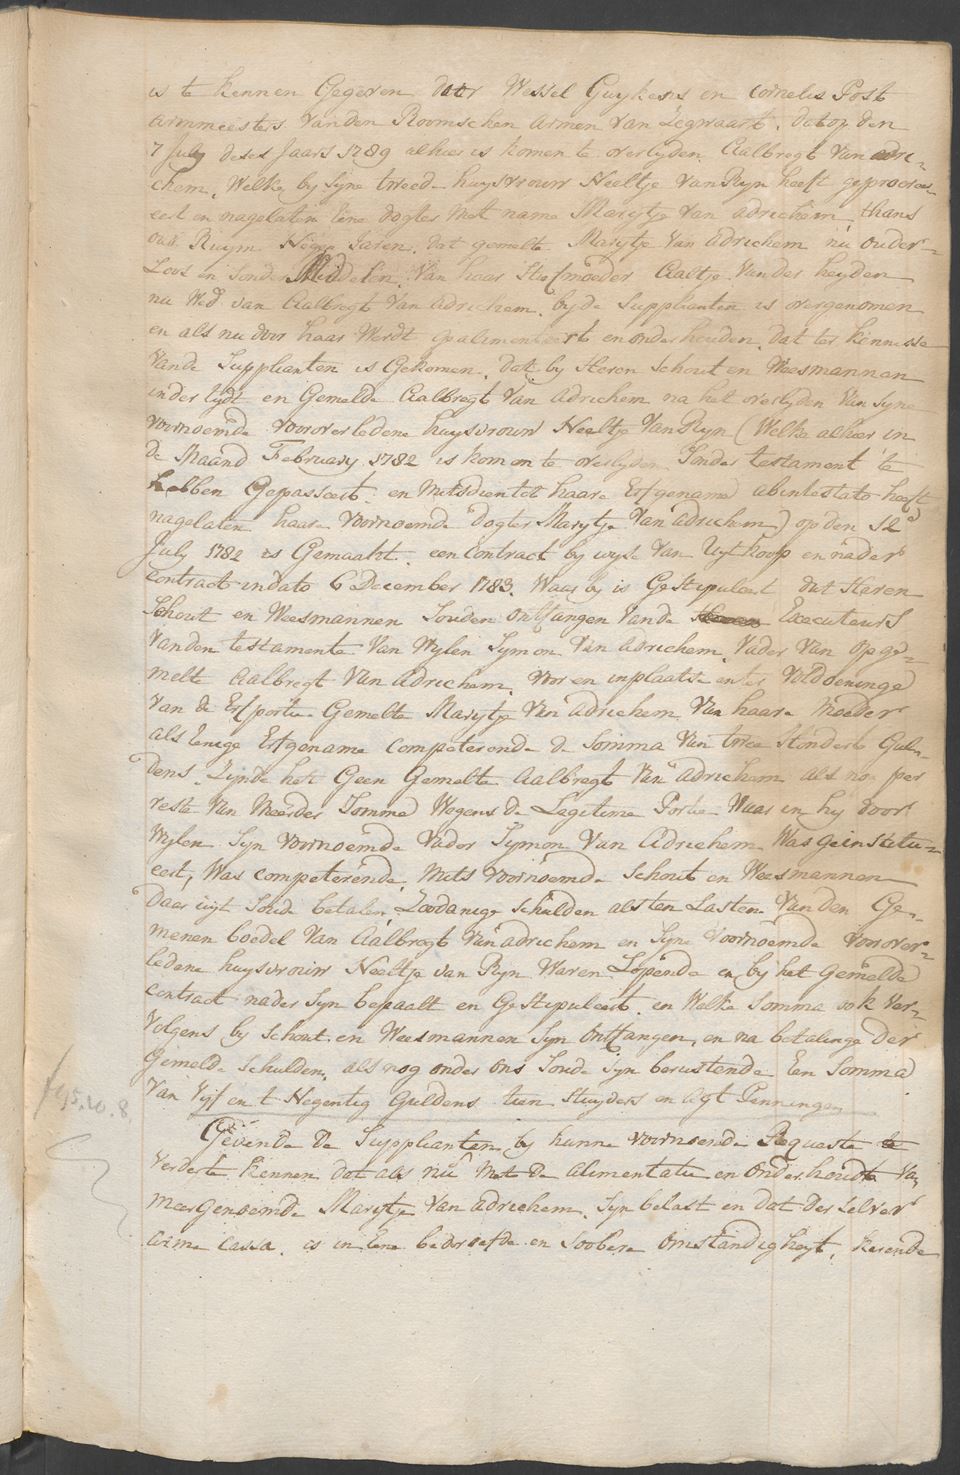 is te kennen Gegeven door Wessel Guykens en Cornelis Post
armmeesters van den Roomschen armen van Legwaart, dat op den
7 July deses Jaars 1789 alhier is komen te overlyden Aalbregt Van adri-
chem, Welke by Syne tweede huysvrouw Neeltje Van Ryn heeft geprocre-
eert en nagelaten Eene dogter Met name Marytje Van adrichem, thans
oud Ruym Jaren, dat gemelte Marytje Van adrichem nu ouder-
Loos en Sonder Middelen, Van haar Stiefmoeder Aaltje Van der heyden
nu Wed. van Aalbregt Van Adrichem, by de Supplianten is overgenomen
en als nu door haar Werdt gealimenteert en onderhouden, dat ter kennisse
Vande Supplianten is Gekomen, dat by Heren Schout en Weesmannen
inder tydt en Gemelde Aalbregt Van Adrichem na het overlyden Van Syne
voornoemde vooroverledene huysvrouw Neeltje Van Ryn (Welke alhier in
de Maand February 1782 is komen te overlyden Sonder testament te
hebben Gepasseert, en mitsdien tot haare Erfgename abintestato heeft
nagelaten haare Voornoemde dogter Marytje Van adrichem) op den 12e
July 1782 is Gemaakt een Contract by wyse Van Uytkoop en nader
Contract in dato 6 December 1783. Waar by is Gestipuleert dat Heren
Schout en Weesmannen Souden ontfangen Van de Executeurs
Van den testamente Van Wylen Symon Van Adrichem, Vader Van opge-
melte Aalbregt Van Adrichem, voor en in plaatse en ter Voldoeninge
Van de Erfportie Gemelte Marytje Van Adrichem Van haare Moeder
als Eenige Erfgename competerende de Somma Van twee Honderd Gul-
dens, Zynde het Geen Gemelte Aalbregt Van adrichem als nog per
reste Van Meerder Somma Wegens de Legitime Portie Waar in hy door
Wylen Syn voornoemde Vader Symon Van Adrichem Was geinstitu-
eert, Was competerende, Mits voornoemde Schout en Weesmannen
Daar uyt Soude betalen, Zoodanige schulden als ten Lasten Van den Ge-
menen boedel Van Aalbregt Van adrichem en Syne Voornoemde voorover-
ledene huysvrouw Neeltje van Ryn Waren Lopende en by het Gemelde
contract nader Syn bepaalt en Gestipuleert, en Welke Somma ook ver-
volgens by Schout en Weesmannen Syn ontfangen, en na betalinge Der
Gemelde Schulden, als nog onder ons Soude Syn berustende Een Somma
Van Vyf en t Negentig Guldens tien Stuyvers en agt Penningen
f 95.10.8
Gevende de Supplianten by hunne voornoemde Requeste te
Verders kennen dat als nu Met de alimentatie en Onderhoudt Van
meergenoemde Marytje Van adrichem, Syn belast en dat derselver
arme cassa, is in Eene bedroefde en Sobere omstandigheyt, kerende